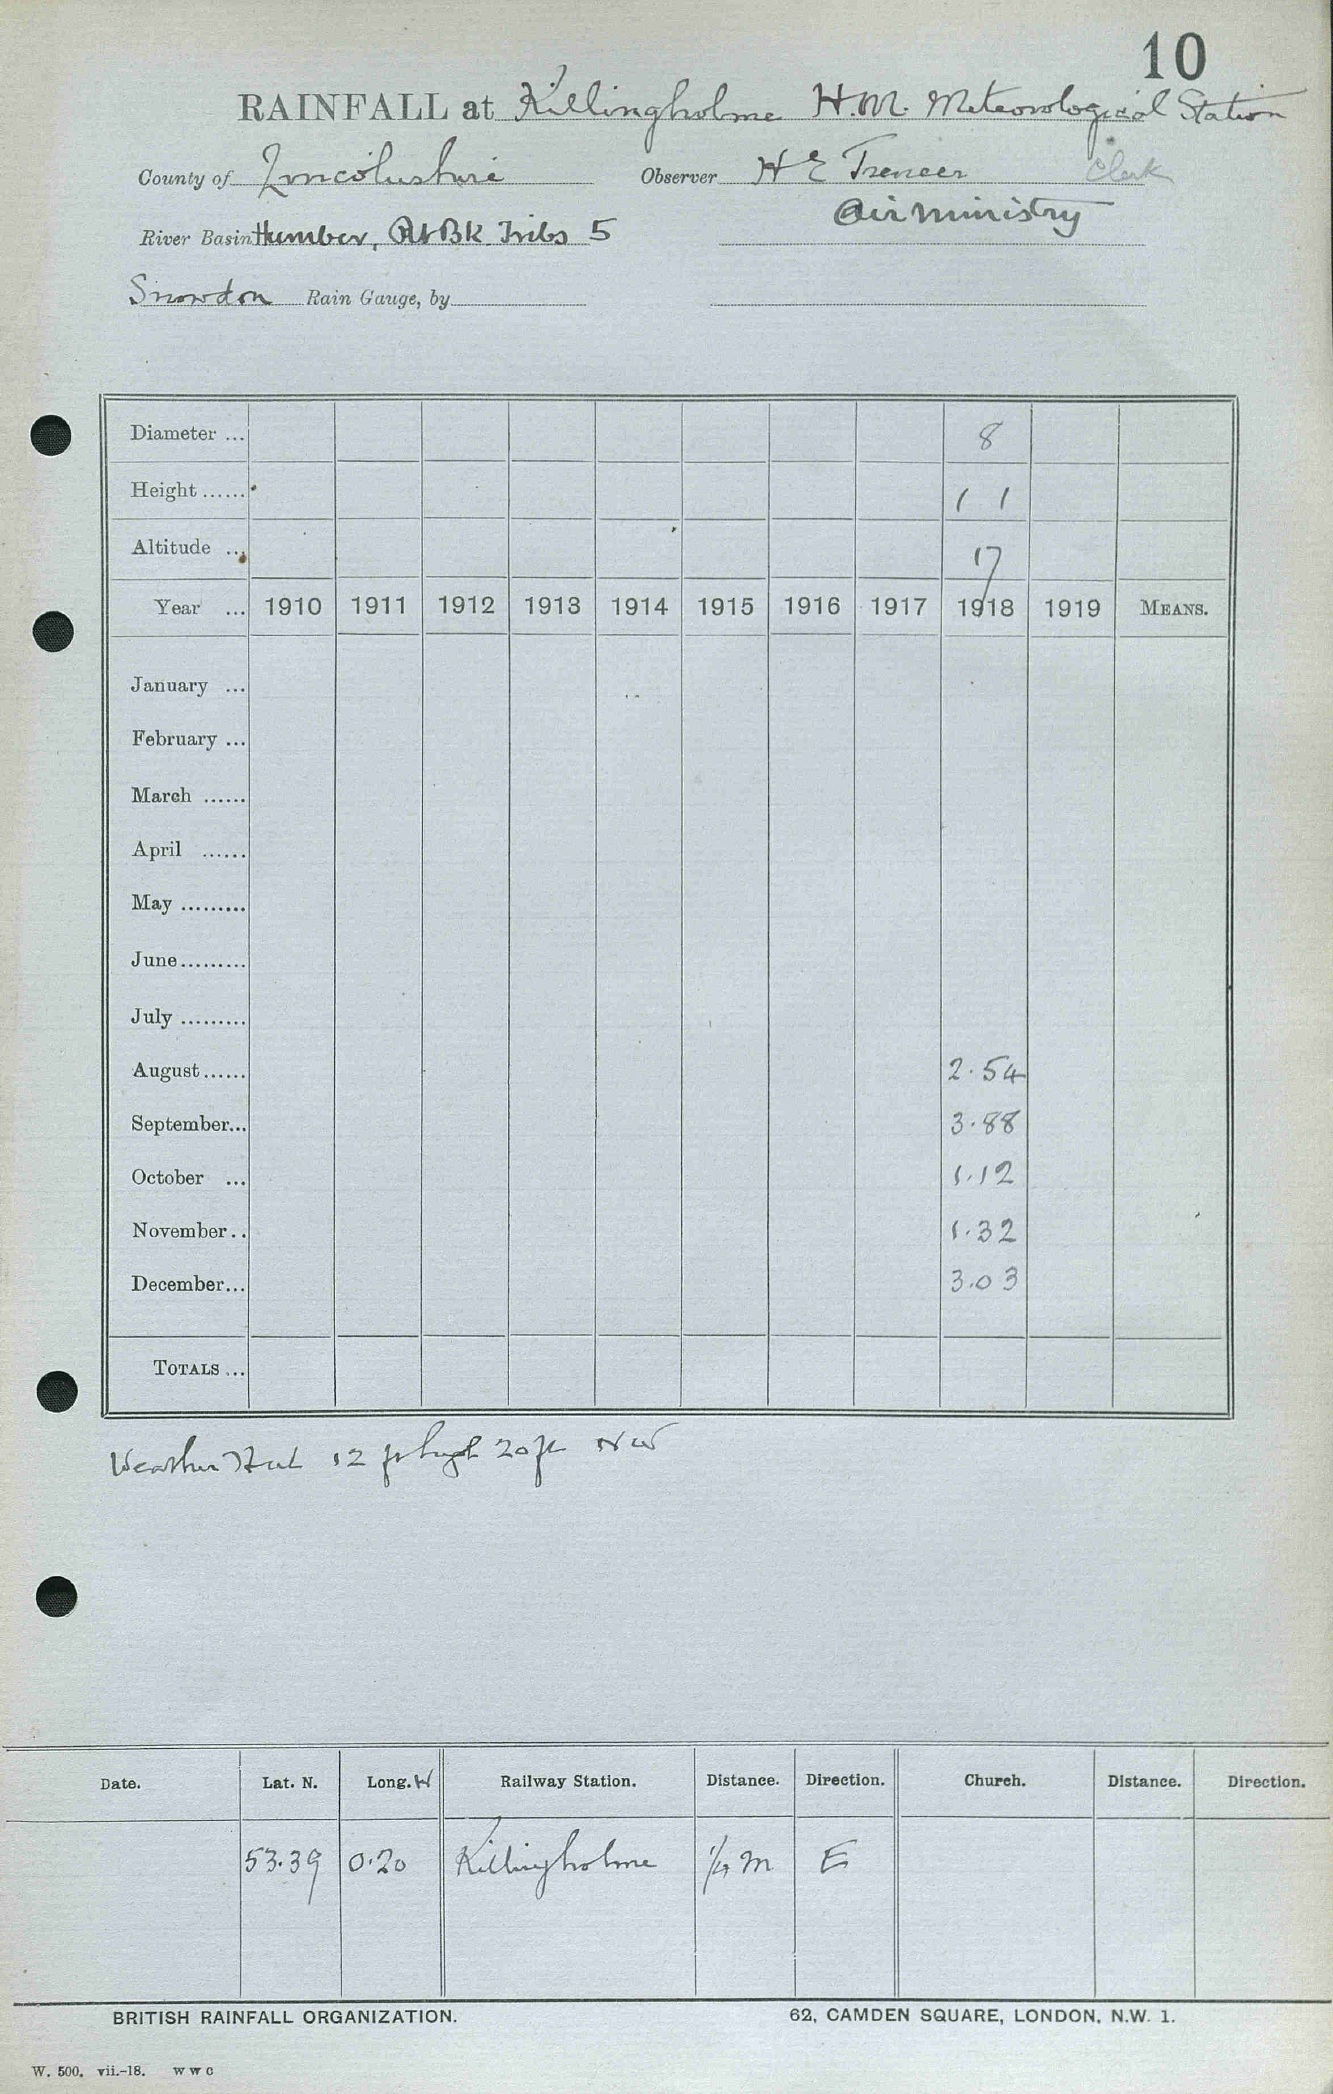 10
RAINFALL at Killingholme H.M. Meteorological Station
County of Lincolnshire Observer H E Treneer Clerk
Air Ministry
River Basin Humber, Rt Bk Tribs 5
Snowdon Rain Gauge, by
Diameter ... 8
Height ...... 1 1
Altitude ... 17
Year ... 1910 1911 1912 1913 1914 1915 1916 1917 1918 1919 MEANS.
January ...
February ...
March ......
April ......
May .........
June.........
July .........
August...... 2.54
September... 3.88
October ... 1.12
November.. 1.32
December... 3.03
TOTALS ...
Weather Hut 12 ft high 20 ft NW
Date. Lat. N. Long. W Railway Station. Distance. Direction. Church. Distance. Direction.
53.39 0.20 Killingholme 1/4 m E
BRITISH RAINFALL ORGANIZATION. 62, CAMDEN SQUARE, LONDON, N.W. 1.
W. 500. vii.-18. W W C